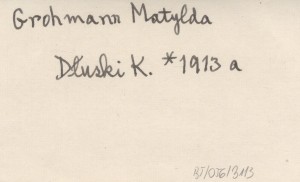 Grohmann Matylda
Dłuski K. *1913 a